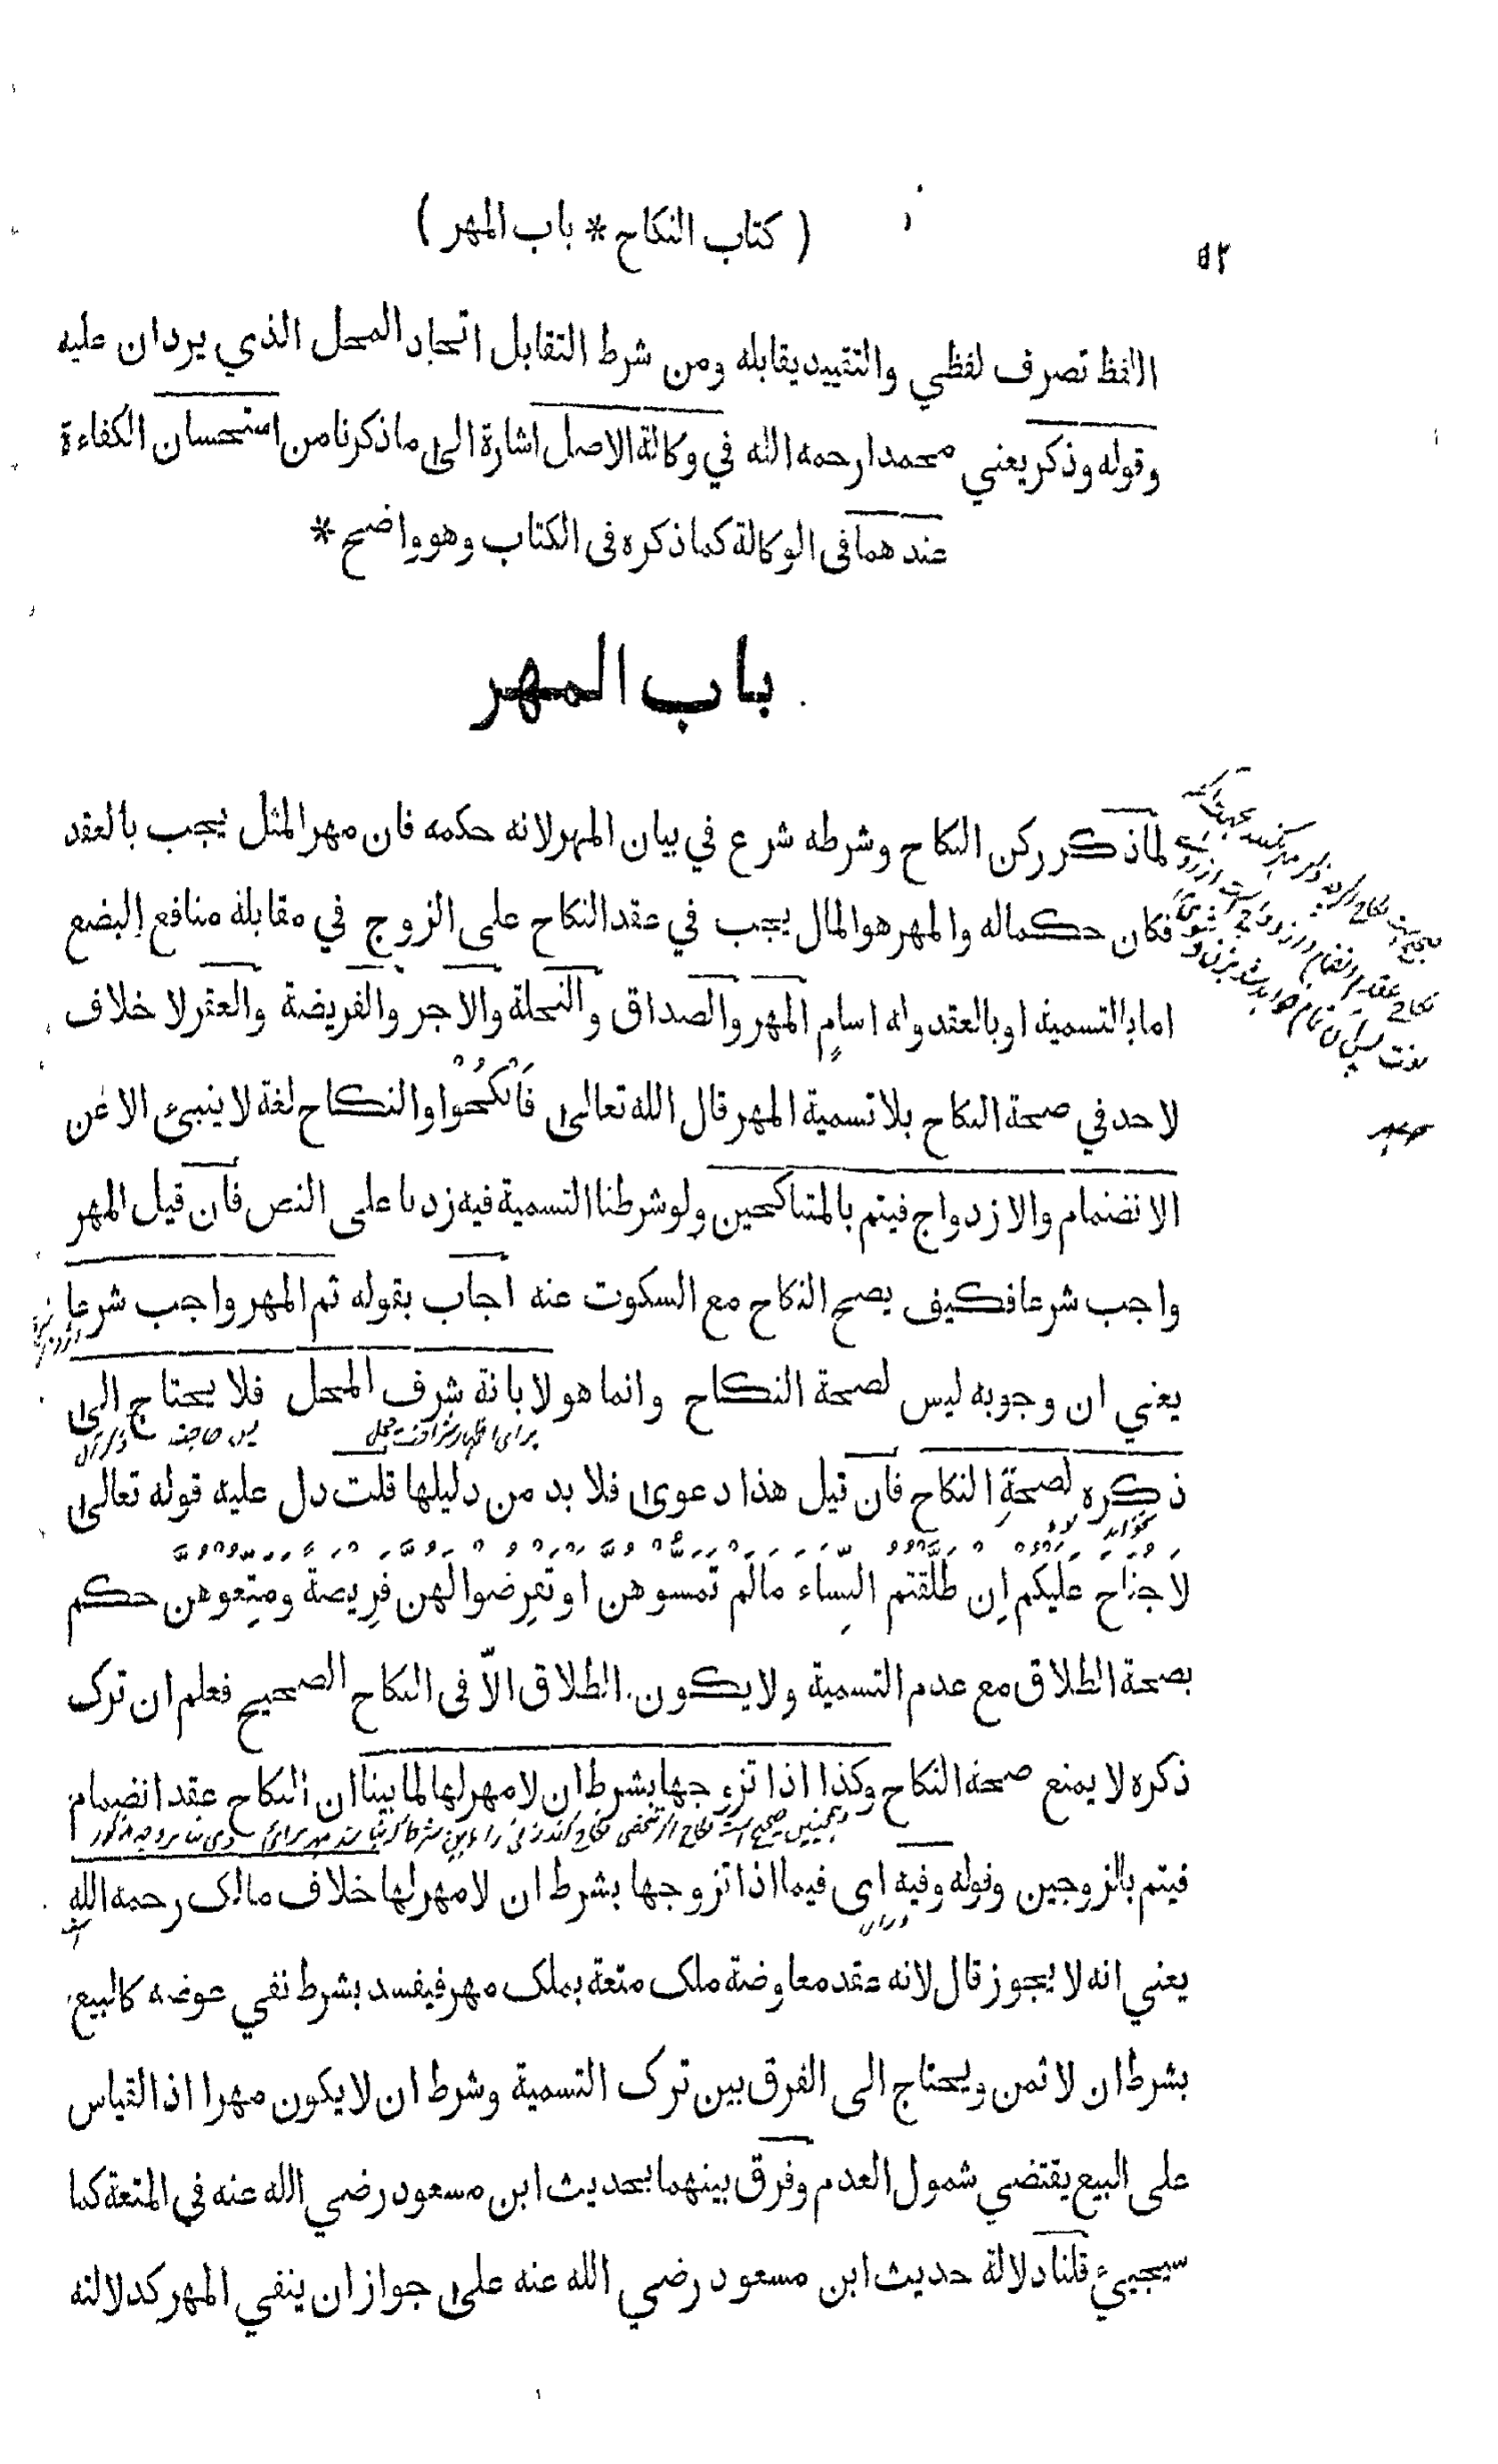 ( كتاب النكاح * باب المهر )
٥٢
اللفظ تصرف لفظي والتقييد يقابله ومن شرط التقابل اتحاد المحل الذي يردان عليه
وقوله وذكر يعني محمدا رحمه الله في وكالة الاصل اشارة الى ما ذكرنا من استحسان الكفاءة
عند هما في الوكالة كما ذكره في الكتاب وهو واضح *
باب المهر
لما ذكر ركن النكاح وشرطه شرع في بيان المهر لانه حكمه فان مهر المثل يجب بالعقد
فكان حكما له والمهر هو المال يجب في عقد النكاح على الزوج في مقابلة منافع البضع
اما بالتسمية او بالعقد وله اسامٍ المهر والصداق والنحلة والاجر والفريضة والعقر لا خلاف
لاحد في صحة النكاح بلا تسمية المهر قال الله تعالى فَانْكِحُوْا والنكاح لغة لا ينبئ الا عن
الانضمام والازدواج فيتم بالمتناكحين ولو شرطنا التسمية فيه زدنا على النص فان قيل المهر
واجب شرعا فكيف يصح النكاح مع السكوت عنه اجاب بقوله ثم المهر واجب شرعا
يعني ان وجوبه ليس لصحة النكاح وانما هو لابانة شرف المحل فلا يحتاج الى
برای اظهار شرافت محل
ذكره لصحة النكاح فان قيل هذا دعوى فلا بد من دليلها قلت دل عليه قوله تعالى
لَا جُنَاحَ عَلَيْكُمْ اِن طَلَّقْتُمُ النِّسَاءَ مَالَمْ تَمَسُّوْهُنَّ اَوْ تَفْرِضُوْا لَهُنَّ فَرِيْضَةً وَمَتِّعُوْهُنَّ حكم
بصحة الطلاق مع عدم التسمية ولا يكون الطلاق الّا في النكاح الصحيح فعلم ان ترك
ذكره لا يمنع صحة النكاح وكذا اذا تزوجها بشرط ان لا مهر لها لما بينا ان النكاح عقد انضمام
فيتم بالزوجين وقوله وفيه اي فيما اذا تزوجها بشرط ان لا مهر لها خلاف مالك رحمه الله
يعني انه لا يجوز قال لانه عقد معاوضة ملك متعة بملك مهر فيفسد بشرط نفي عوضه كالبيع
بشرط ان لا ثمن ويحتاج الى الفرق بين ترك التسمية وشرط ان لا يكون مهرا اذ القياس
على البيع يقتضي شمول العدم وفرق بينهما بحديث ابن مسعود رضي الله عنه في المتعة كما
سيجيئ قلنا دلالة حديث ابن مسعود رضي الله عنه على جواز ان ينفي المهر كدلالته